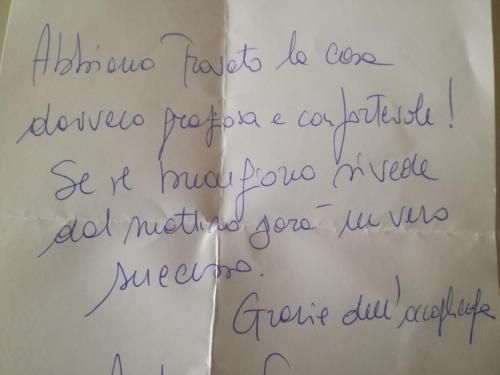 Abbiamo trovato la casa
davvero graziosa e confortevole!
Se il buongiorno si vede
dal mattino sarà un vero
successo.
Grazie dell'accoglienza